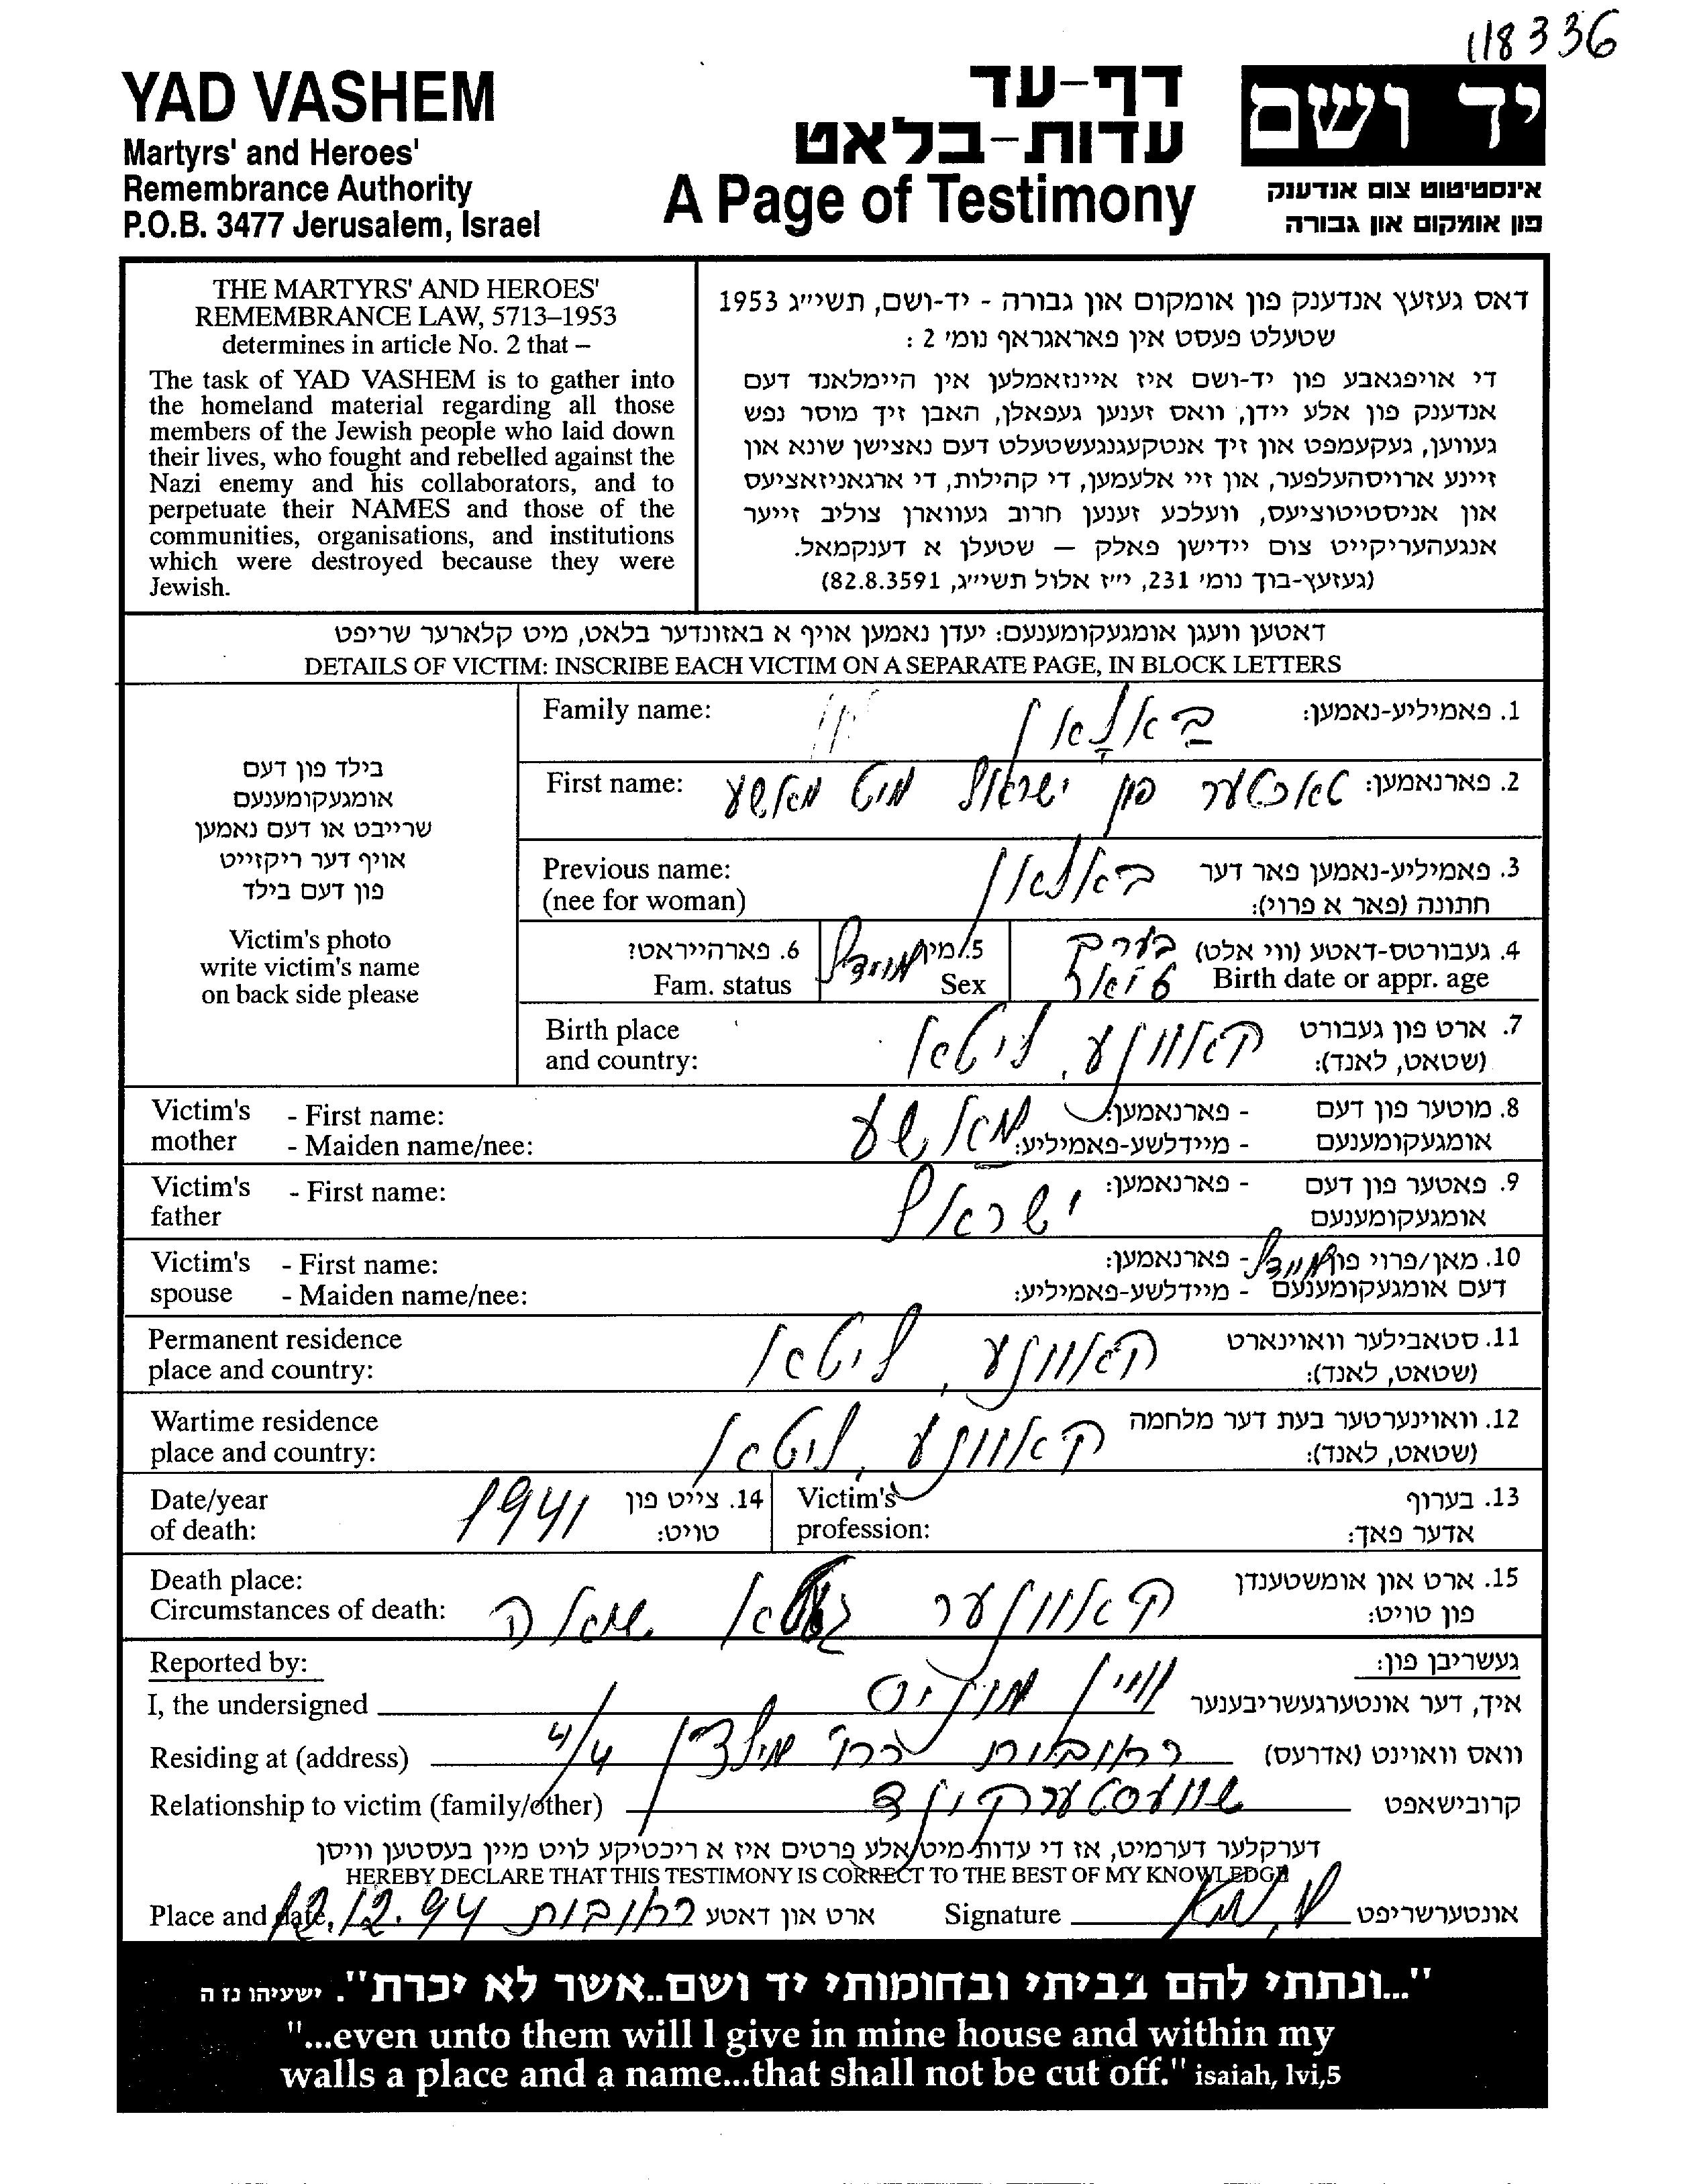 118336
YAD VASHEM
Martyrs' and Heroes'
Remembrance Authority
P.O.B. 3477 Jerusalem, Israel
דף-עד
עדות-בלאט
A Page of Testimony
יד ושם
אינסטיטוט צום אנדענק
פון אומקום און גבורה
THE MARTYRS' AND HEROES'
REMEMBRANCE LAW, 5713–1953
determines in article No. 2 that –
The task of YAD VASHEM is to gather into
the homeland material regarding all those
members of the Jewish people who laid down
their lives, who fought and rebelled against the
Nazi enemy and his collaborators, and to
perpetuate their NAMES and those of the
communities, organisations, and institutions
which were destroyed because they were
Jewish.
דאס געזעץ אנדענק פון אומקום און גבורה - יד-ושם, תשי״ג 1953
שטעלט פעסט אין פאראגראף נומ׳ 2 :
די אויפגאבע פון יד-ושם איז איינזאמלען אין היימלאנד דעם
אנדענק פון אלע יידן, וואס זענען געפאלן, האבן זיך מוסר נפש
געווען, געקעמפט און זיך אנטקעגנגעשטעלט דעם נאצישן שונא און
זיינע ארויסהעלפער, און זיי אלעמען, די קהילות, די ארגאניזאציעס
און אניסטיטוציעס, וועלכע זענען חרוב געווארן צוליב זייער
אנגעהעריקייט צום יידישן פאלק — שטעלן א דענקמאל.
(געזעץ-בוך נומ׳ 231, י״ז אלול תשי״ג, 82.8.3591)
דאטען וועגן אומגעקומענעם: יעדן נאמען אויף א באזונדער בלאט, מיט קלארער שריפט
DETAILS OF VICTIM: INSCRIBE EACH VICTIM ON A SEPARATE PAGE, IN BLOCK LETTERS
בילד פון דעם
אומגעקומענעם
שרייבט או דעם נאמען
אויף דער ריקזייט
פון דעם בילד
Victim's photo
write victim's name
on back side please
Family name: באלאן 1. פאמיליע-נאמען:
First name: טאכטער פון ישראל מיט מאשע 2. פארנאמען:
Previous name: באלאן 3. פאמיליע-נאמען פאר דער
(nee for woman) חתונה (פאר א פרוי):
6. פארהייראט? 5. מין 4. געבורטס-דאטע (ווי אלט)
Fam. status מיידל Sex בערך 6 יאר Birth date or appr. age
Birth place קאוונע, ליטא 7. ארט פון געבורט
and country: (שטאט, לאנד):
Victim's - First name: מאשע - פארנאמען: 8. מוטער פון דעם
mother - Maiden name/nee: - מיידלשע-פאמיליע: אומגעקומענעם
Victim's - First name: ישראל - פארנאמען: 9. פאטער פון דעם
father אומגעקומענעם
Victim's - First name: - פארנאמען: מיידל 10. מאן/פרוי פון
spouse - Maiden name/nee: - מיידלשע-פאמיליע: דעם אומגעקומענעם
Permanent residence קאוונע, ליטא 11. סטאבילער וואוינארט
place and country: (שטאט, לאנד):
Wartime residence קאוונע, ליטא 12. וואוינערטער בעת דער מלחמה
place and country: (שטאט, לאנד):
Date/year 1941 14. צייט פון Victim's 13. בערוף
of death: טויט: profession: אדער פאך:
Death place: קאוונער געטא שואה 15. ארט און אומשטענדן
Circumstances of death: פון טויט:
Reported by: געשריבן פון:
I, the undersigned וויין איך, דער אונטערגעשריבענער
Residing at (address) רחובות 4/4 וואס וואוינט (אדרעס)
Relationship to victim (family/other) שוועסטערקינד קרובישאפט
דערקלער דערמיט, אז די עדות מיט אלע פרטים איז א ריכטיקע לויט מיין בעסטען וויסן
HEREBY DECLARE THAT THIS TESTIMONY IS CORRECT TO THE BEST OF MY KNOWLEDGE
Place and date, 12.12.94 רחובות ארט און דאטע Signature אונטערשריפט
"...ונתתי להם בביתי ובחומותי יד ושם..אשר לא יכרת". ישעיהו נז ה
"...even unto them will I give in mine house and within my
walls a place and a name...that shall not be cut off." isaiah, lvi,5